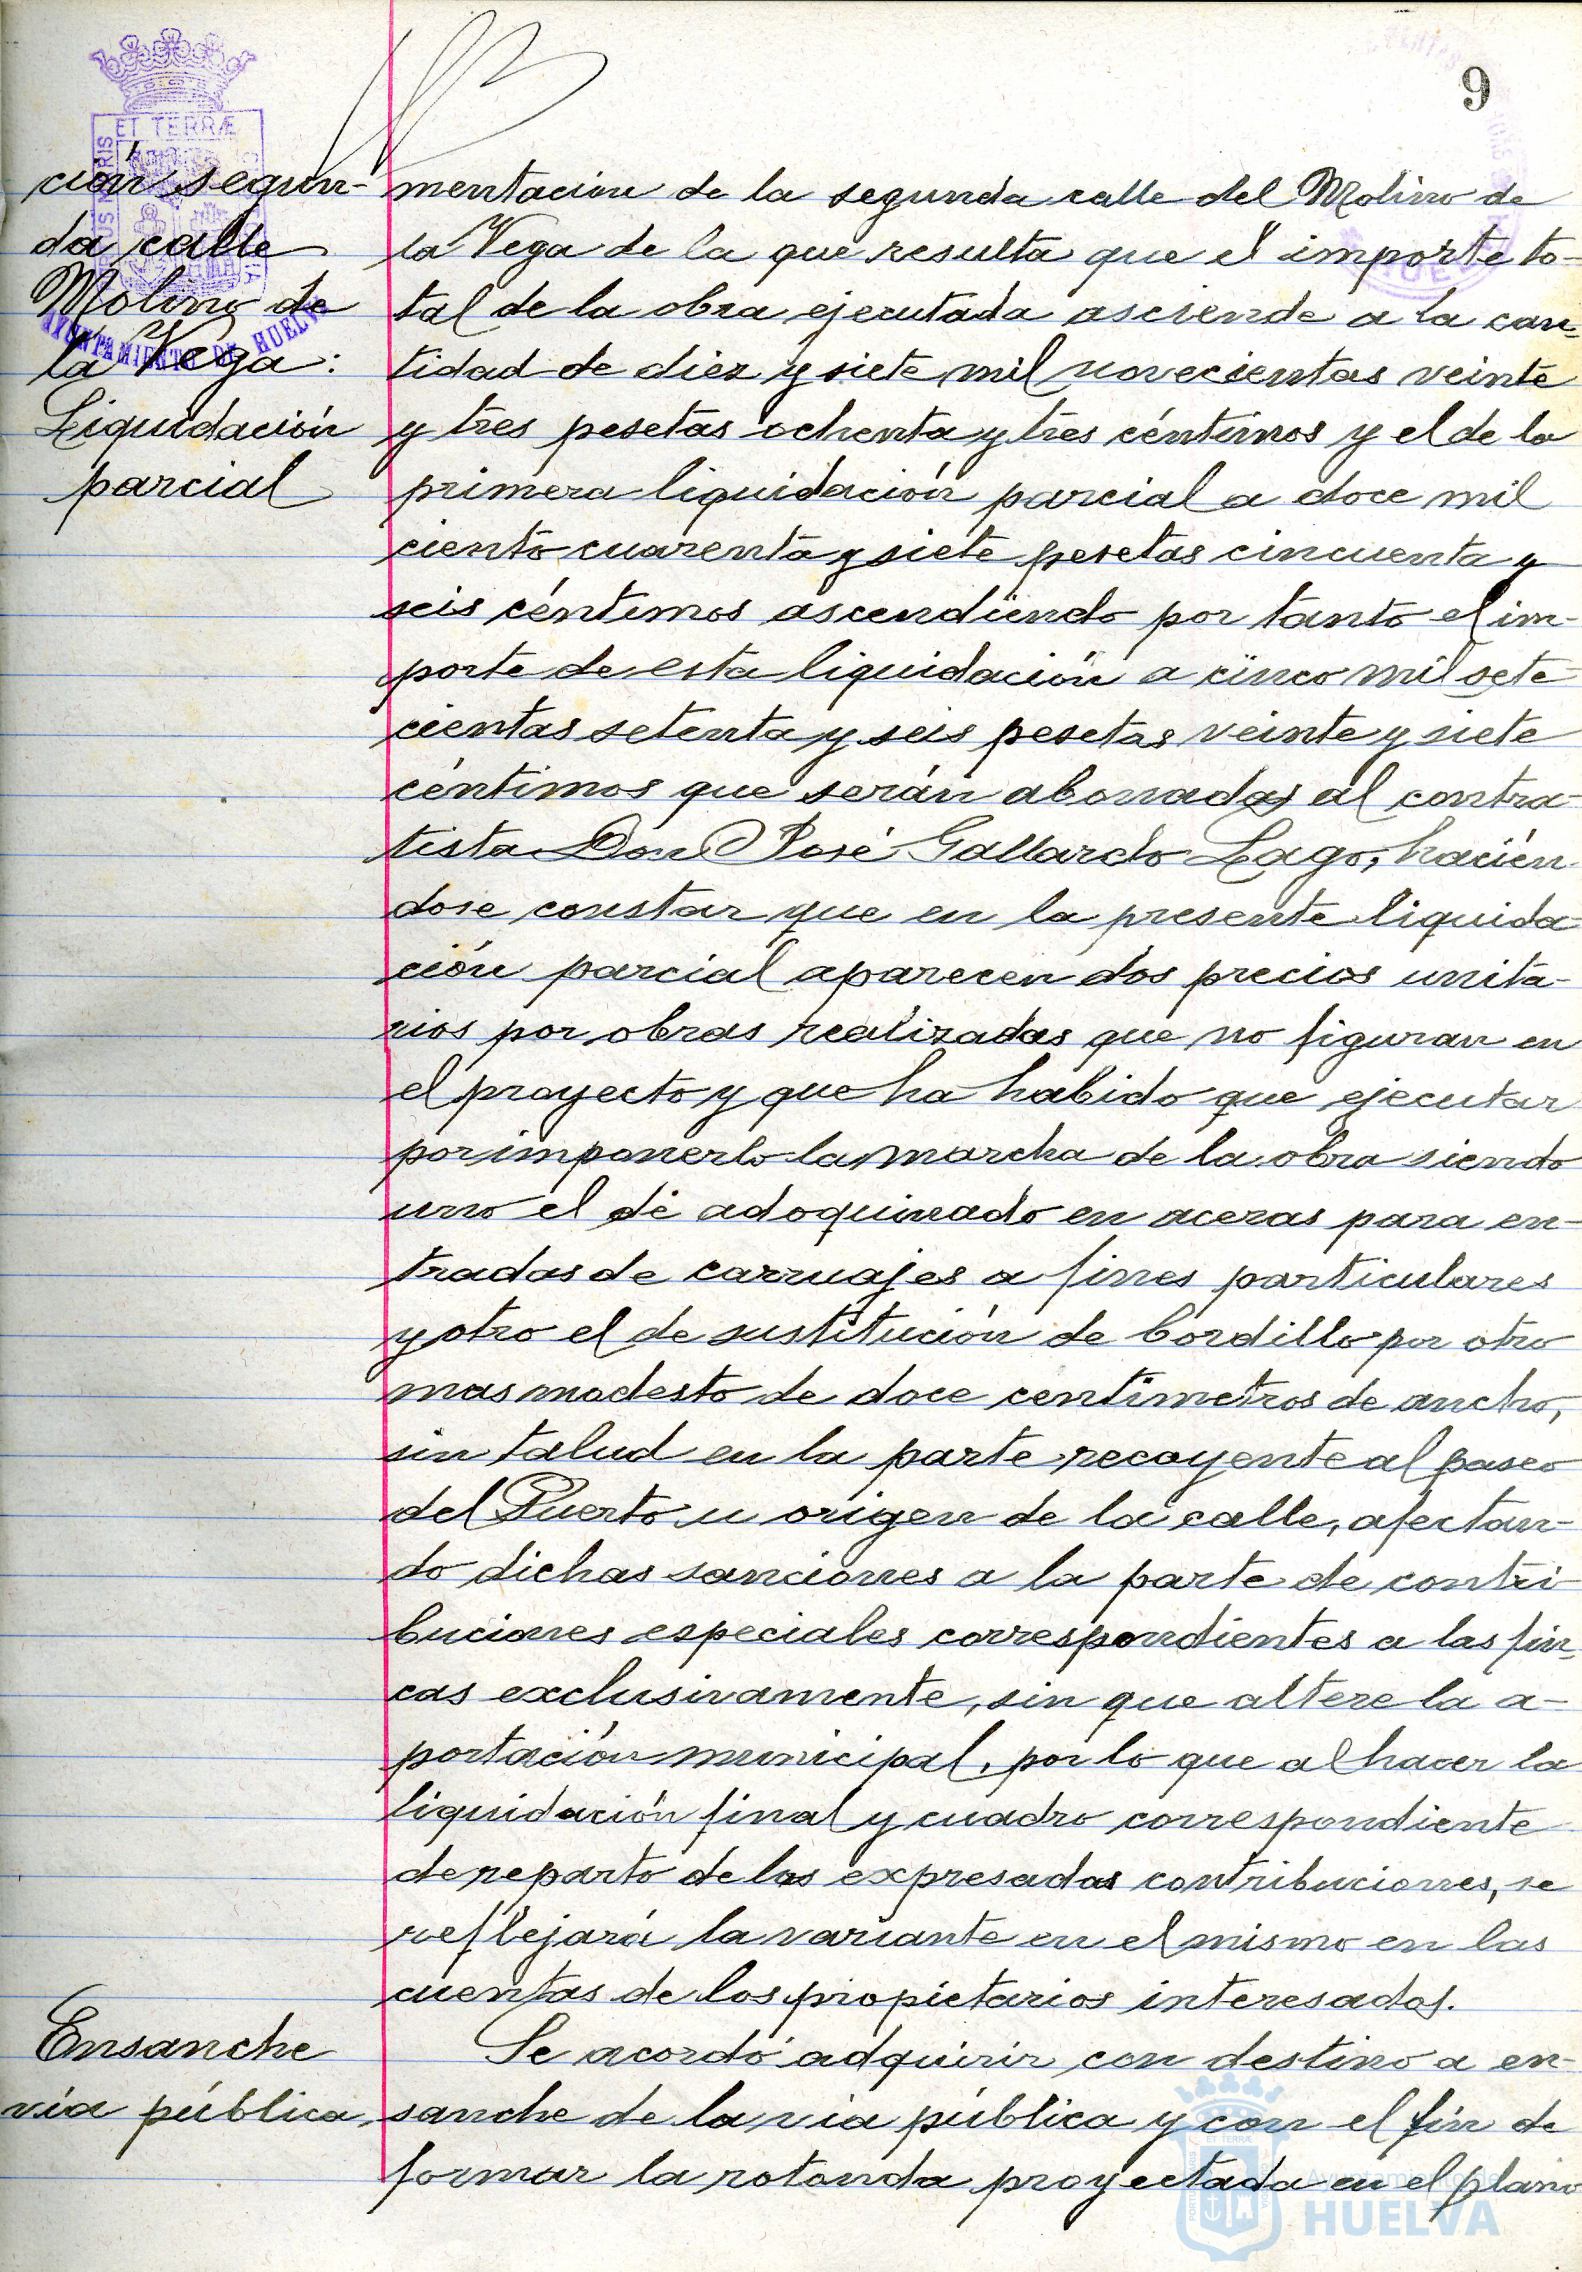 9
ET TERRÆ
AYUNTAMIENTO DE HUELVA
ción segun-
da calle
Molino de
la Vega:
Liquidación
parcial
mentación de la segunda calle del Molino de
la Vega de la que resulta que el importe to-
tal de la obra ejecutada asciende a la can-
tidad de diez y siete mil novecientas veinte
y tres pesetas ochenta y tres céntimos y el de la
primera liquidación parcial a doce mil
ciento cuarenta y siete pesetas cincuenta y
seis céntimos ascendiendo por tanto el im-
porte de esta liquidación a cinco mil sete-
cientas setenta y seis pesetas veinte y siete
céntimos que serán abonadas al contra-
tista Don José Gallardo Lago, hacién-
dose constar que en la presente liquida-
ción parcial aparecen dos precios unita-
rios por obras realizadas que no figuran en
el proyecto y que ha habido que ejecutar
por imponerlo la marcha de la obra siendo
uno el de adoquinado en aceras para en-
tradas de carruajes a fines particulares
y otro el de sustitución de bordillo por otro
mas modesto de doce centimetros de ancho,
sin talud en la parte recayente al paseo
del Puerto u origen de la calle, afectan-
do dichas sanciones a la parte de contri-
buciones especiales correspondientes a las fin-
cas exclusivamente, sin que altere la a-
portación municipal, por lo que al hacer la
liquidación final y cuadro correspondiente
de reparto de las expresadas contribuciones, se
reflejará la variante en el mismo en las
cuentas de los propietarios interesados.
Ensanche
via pública
Se acordó adquirir con destino a en-
sanche de la via pública y con el fin de
formar la rotonda proyectada en el plano
Ayuntamiento de
HUELVA